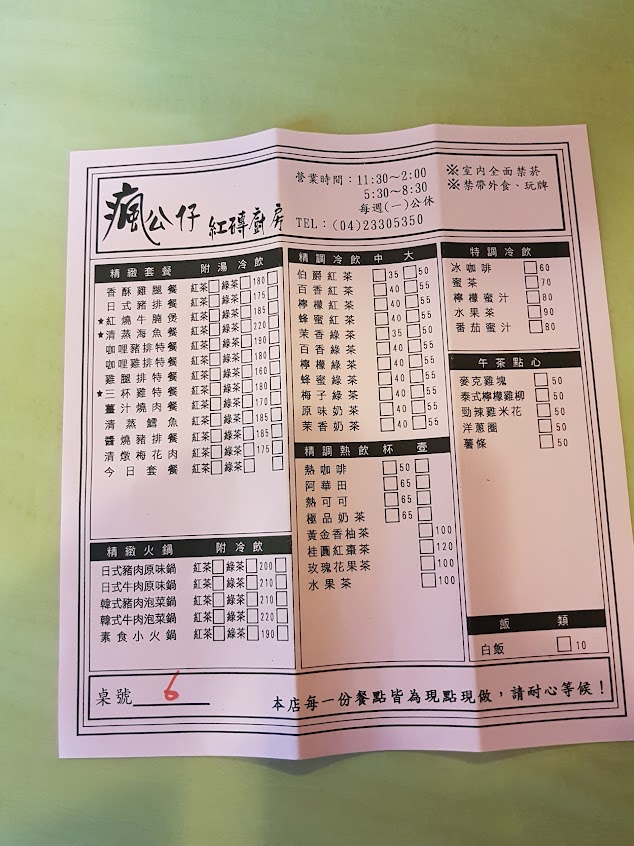 瘋公仔 紅磚廚房
營業時間：11:30～2:00
5:30～8:30
每週(一)公休
TEL：(04)23305350
※室內全面禁菸
※禁帶外食、玩牌
精緻套餐 附湯冷飲
香酥雞腿餐 紅茶□綠茶□180□
日式豬排餐 紅茶□綠茶□175□
★紅燒牛腩煲 紅茶□綠茶□185□
★清蒸海魚餐 紅茶□綠茶□220□
咖哩豬排特餐 紅茶□綠茶□190□
咖哩雞排特餐 紅茶□綠茶□180□
雞腿排特餐 紅茶□綠茶□160□
★三杯雞特餐 紅茶□綠茶□180□
薑汁燒肉餐 紅茶□綠茶□170□
清蒸鱈魚 紅茶□綠茶□185□
醬燒豬排餐 紅茶□綠茶□185□
清燉梅花肉 紅茶□綠茶□175□
今日套餐 紅茶□綠茶□ □
精緻火鍋 附冷飲
日式豬肉原味鍋 紅茶□綠茶□200□
日式牛肉原味鍋 紅茶□綠茶□210□
韓式豬肉泡菜鍋 紅茶□綠茶□210□
韓式牛肉泡菜鍋 紅茶□綠茶□220□
素食小火鍋 紅茶□綠茶□190□
精調冷飲 中 大
伯爵紅茶 □35□50
百香紅茶 □40□55
檸檬紅茶 □40□55
蜂蜜紅茶 □40□55
茉香綠茶 □35□50
百香綠茶 □40□55
檸檬綠茶 □40□55
蜂蜜綠茶 □40□55
梅子綠茶 □40□55
原味奶茶 □40□55
茉香奶茶 □40□55
精調熱飲 杯 壹
熱咖啡 □50□
阿華田 □65□
熱可可 □65□
極品奶茶 □65□
黃金香柚茶 □100
桂圓紅棗茶 □120
玫瑰花果茶 □100
水果茶 □100
特調冷飲
冰咖啡 □60
蜜茶 □70
檸檬蜜汁 □80
水果茶 □90
番茄蜜汁 □80
午茶點心
麥克雞塊 □50
泰式檸檬雞柳 □50
勁辣雞米花 □50
洋蔥圈 □50
薯條 □50
飯類
白飯 □10
桌號 6
本店每一份餐點皆為現點現做，請耐心等候！